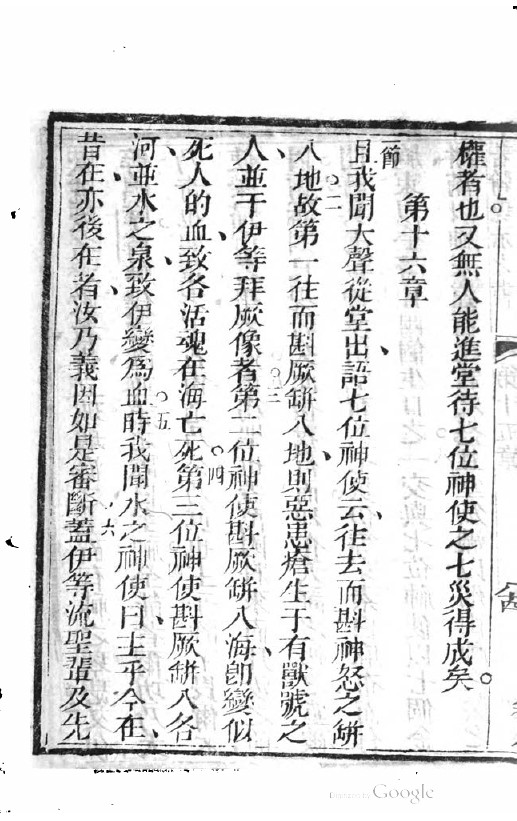 權者也又無人能進堂待七位神使之七災得成矣
第十六章
節
且我聞大聲從堂出語七位神使云往去而斟神怒之缾
二
入地故第一往而斟厥缾入地則惡患瘡生于有獸號之
三
人並于伊等拜厥像者第二位神使斟厥缾入海即變似
四
死人的血致各活魂在海亡死第三位神使斟厥缾入各
五
河並水之泉致伊變為血時我聞水之神使曰主乎今在
六
昔在亦後在者汝乃義因如是審斷蓋伊等流聖輩及先
Digitized by Google